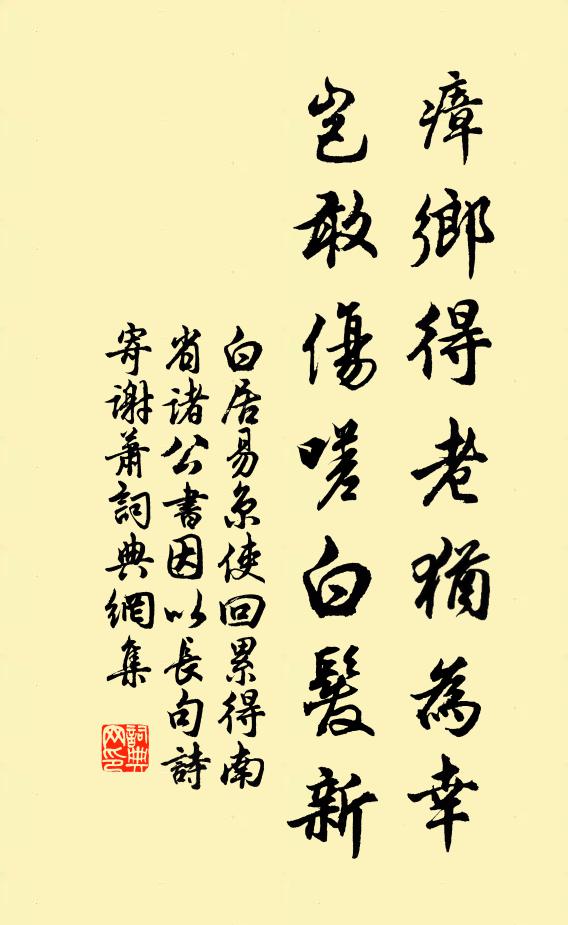 瘴鄉得老猶為幸
豈敢傷嗟白髮新
白居易京使回累得南
省諸公書因以長句詩
寄謝蕭詞典網集
詞典
网印